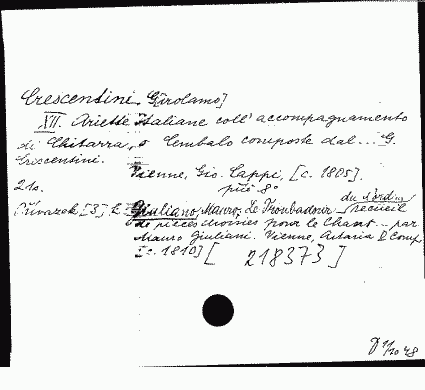 Crescentini, G[irolamo]
XII. Ariette Italiane coll' accompagnamento
di Chitarra, o Cembalo composte dal ... G.
Crescentini.
Vienne, Gio. Cappi, [c. 1805].
21s.
Přívazek [3] k Giuliano Mauro, Le Troubadour du Nord ou Recueil
de pièces choisies pour le Chant ... par
Mauro Giuliani. Vienne, Artaria & Comp.
[c. 1810] [218373]